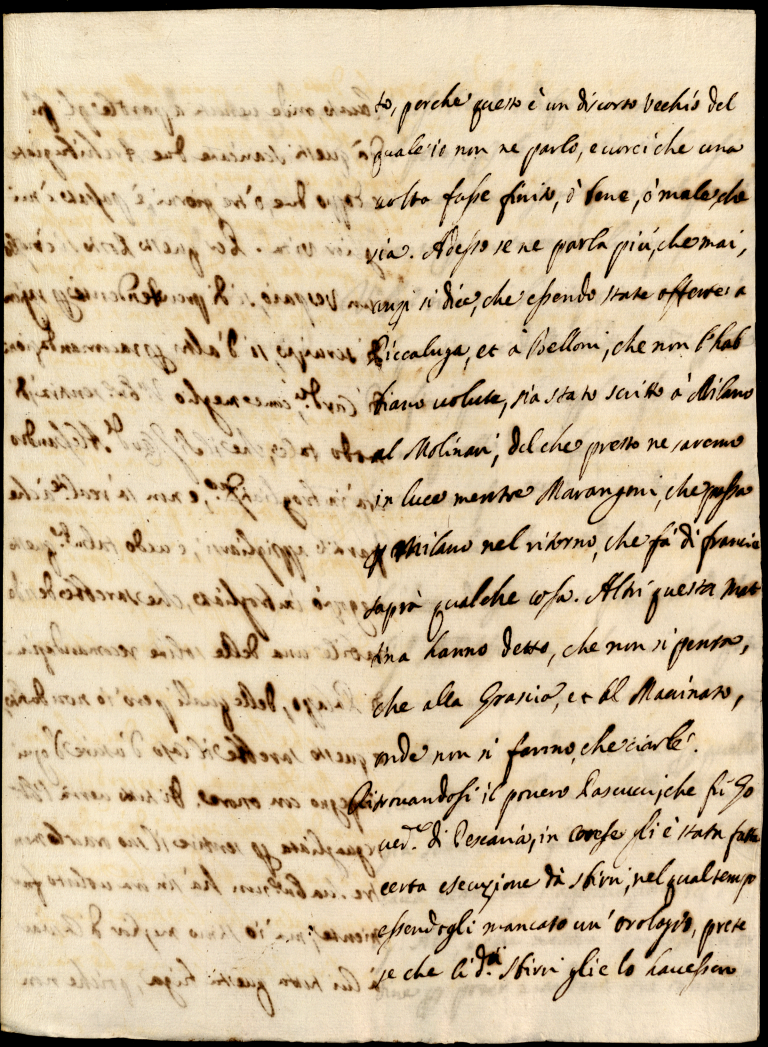 to, perche questo è un discorso vecchio del
quale io non ne parlo, e vorei che una
volta fosse finito, ò bene, ò male che
sia. Adesso se ne parla più, che mai,
anzi si dice, che essendo state offerte a
Piccaluga, et à Belloni, che non l'hab
biano volute, sia stato scritto à Milano
al Molinari, del che presto ne saremo
in luce mentre Marangoni, che passa
p Milano nel ritorno, che fà di francia
saprà qualche cosa. Altri questa mat
tina hanno detto, che non si pensa,
che alla Grascia, et al Macinato,
onde non si fanno, che ciarle.
Ritrovandosi il povero Pascucci, che fù Go
ver.re di Pescaria, in Corese gli è stata fatta
certa esecuzione dà sbirri, nel qual tempo
essendogli mancato un' orologio, prete
se che li d.i sbirri glie lo havessero